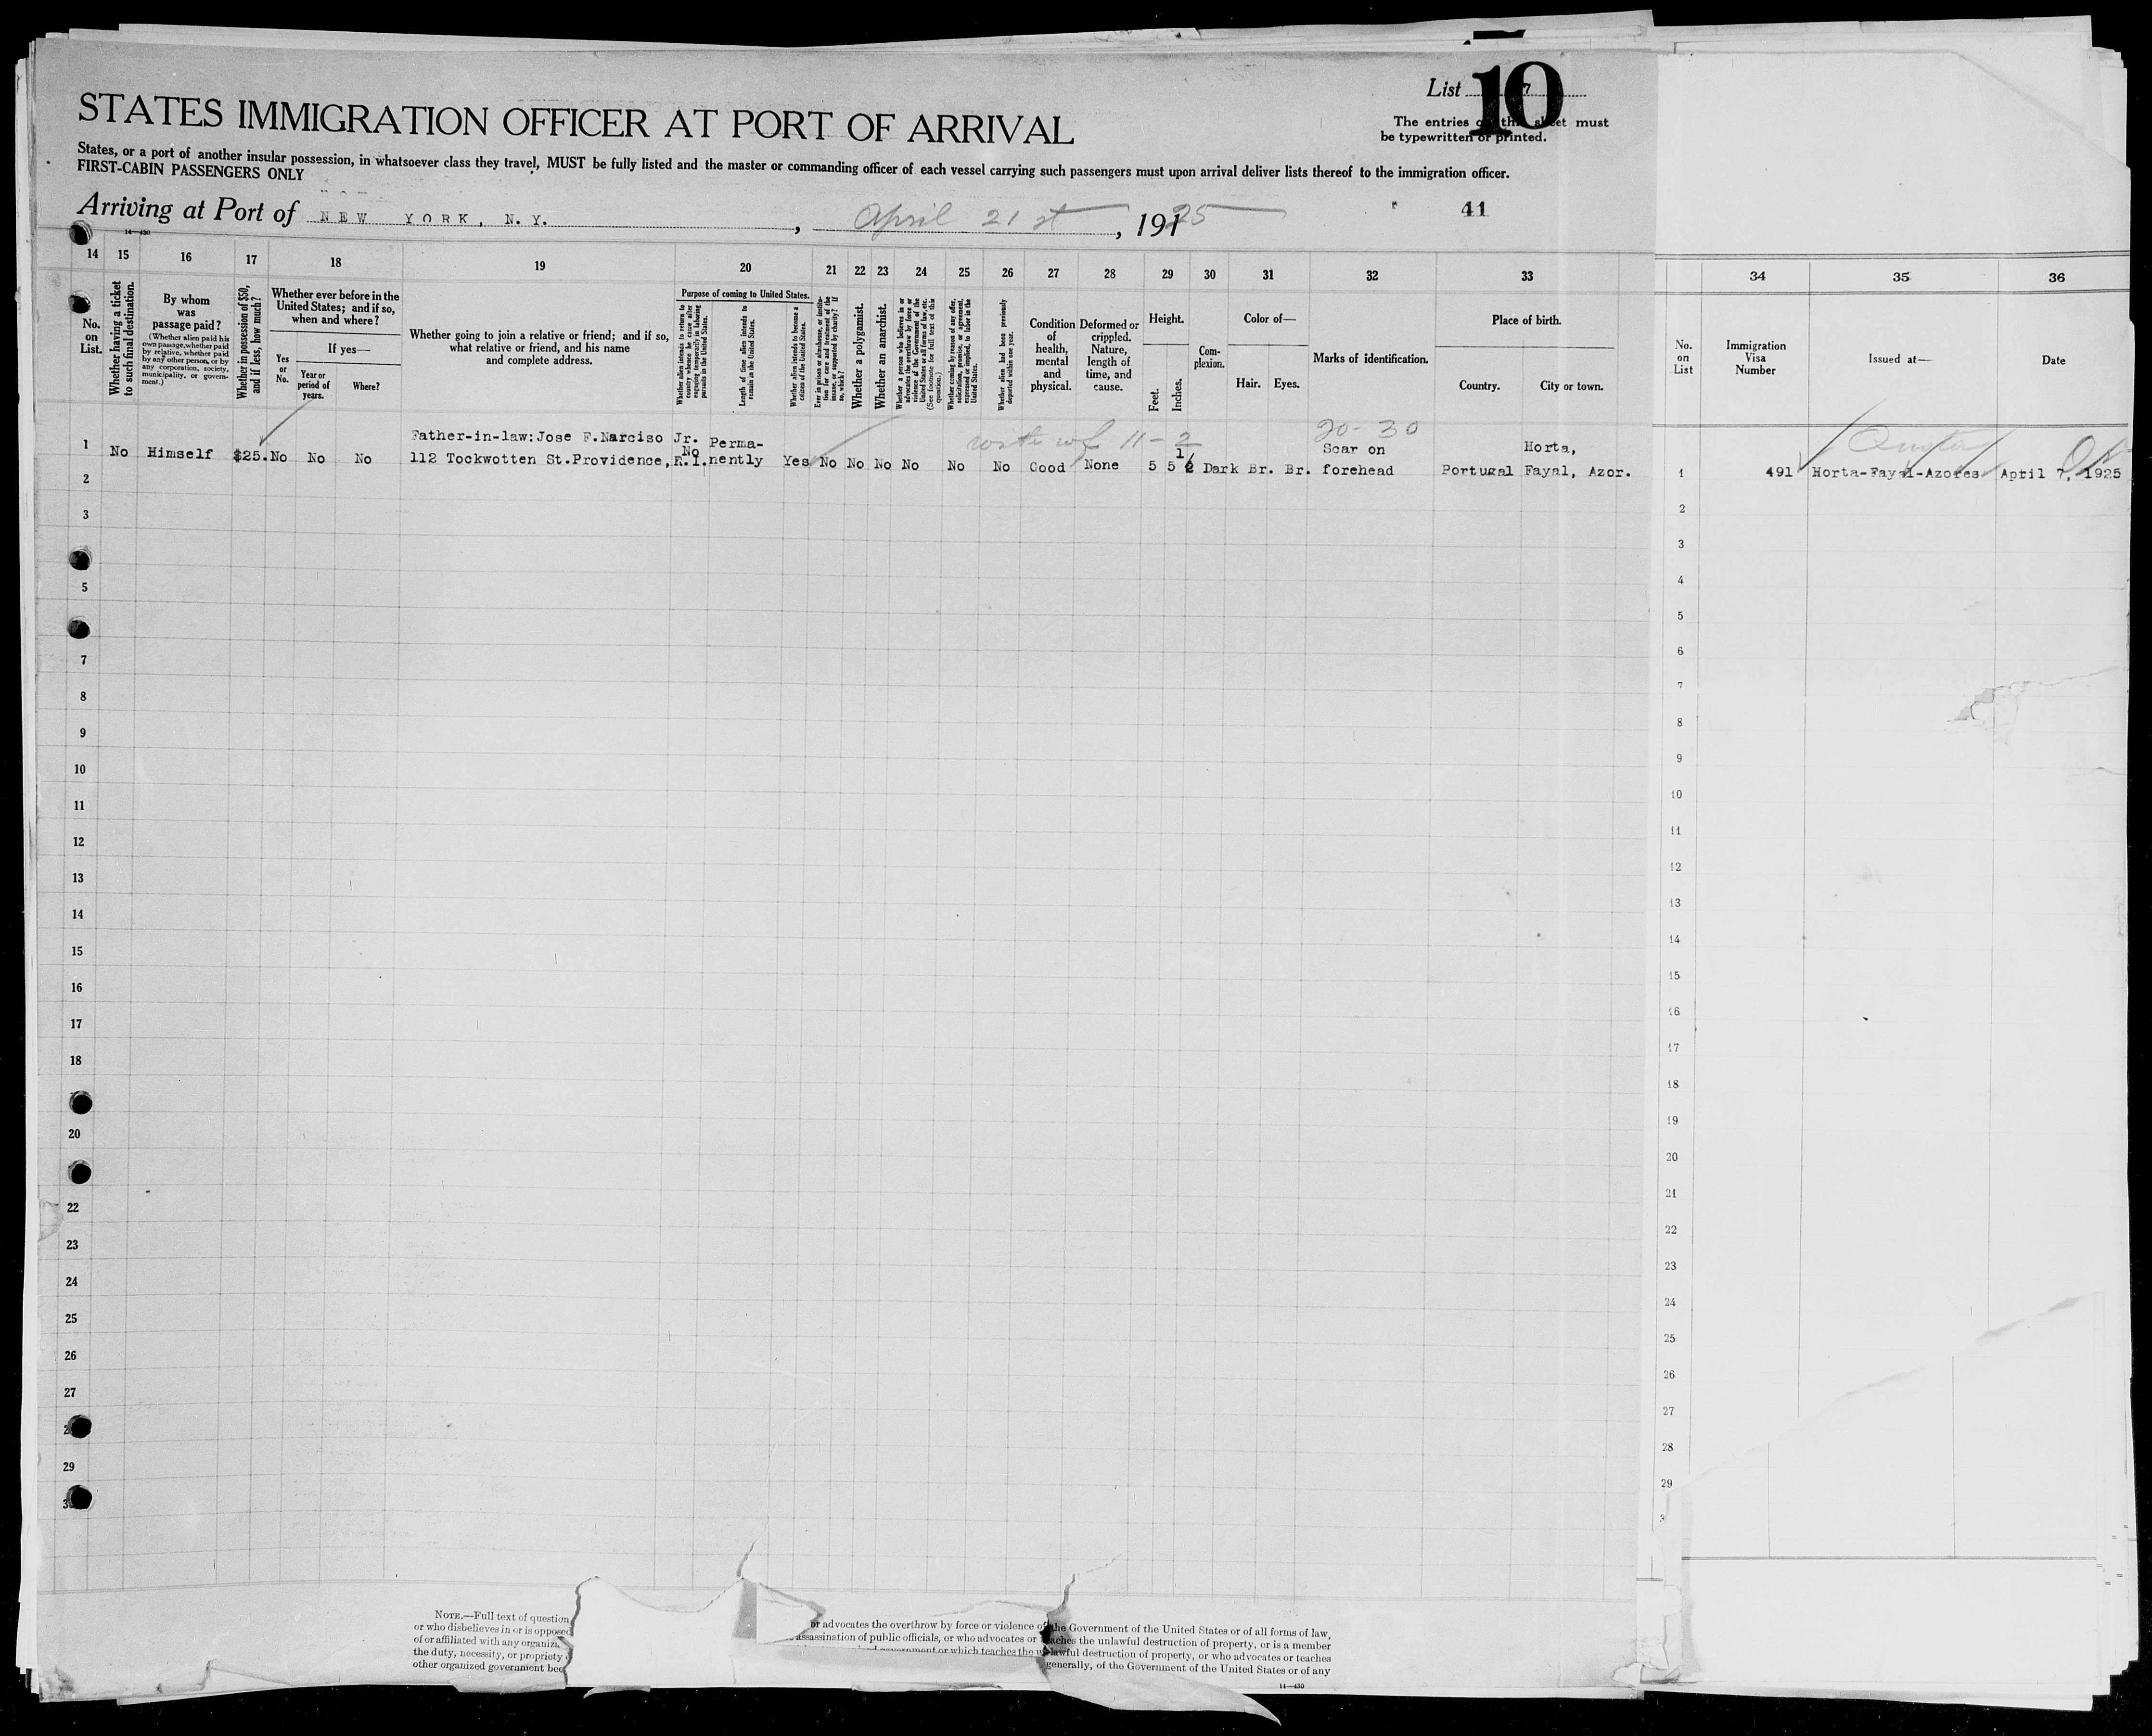 List 7
10
STATES IMMIGRATION OFFICER AT PORT OF ARRIVAL
The entries on this sheet must
be typewritten or printed.
States, or a port of another insular possession, in whatsoever class they travel, MUST be fully listed and the master or commanding officer of each vessel carrying such passengers must upon arrival deliver lists thereof to the immigration officer.
FIRST-CABIN PASSENGERS ONLY
Arriving at Port of NEW YORK, N.Y. , April 21st , 1925
41
14—430
14 15 16 17 18 19 20 21 22 23 24 25 26 27 28 29 30 31 32 33 34 35 36
No. on List.
Whether having a ticket to such final destination.
By whom was passage paid?
(Whether alien paid his own passage, whether paid by relative, whether paid by any other person, or by any corporation, society, municipality, or government.)
Whether in possession of $50, and if less, how much?
Whether ever before in the United States; and if so, when and where?
Yes or No.
If yes—
Year or period of years.
Where?
Whether going to join a relative or friend; and if so, what relative or friend, and his name and complete address.
Purpose of coming to United States.
Whether alien intends to return to country whence he came after engaging temporarily in laboring pursuits in the United States.
Length of time alien intends to remain in the United States.
Whether alien intends to become a citizen of the United States.
Ever in prison or almshouse, or institution for care and treatment of the insane, or supported by charity? If so, which?
Whether a polygamist.
Whether an anarchist.
Whether a person who believes in or advocates the overthrow by force or violence of the Government of the United States or all forms of law, etc. (See footnote for full text of this question.)
Whether coming by reason of any offer, solicitation, promise, or agreement, expressed or implied, to labor in the United States.
Whether alien had been previously deported within one year.
Condition of health, mental and physical.
Deformed or crippled. Nature, length of time, and cause.
Height.
Feet. Inches.
Complexion.
Color of—
Hair. Eyes.
Marks of identification.
Place of birth.
Country. City or town.
No. on List
Immigration Visa Number
Issued at—
Date
11 - 2
20-30
Father-in-law:Jose F.Narciso Jr. Perma- Scar on Horta,
1 No Himself $25. No No No 112 Tockwotten St.Providence, R.I. No nently Yes No No No No No No Good None 5 5 1/2 Dark Br. Br. forehead Portugal Fayal, Azor. 1 491 Horta-Fayal-Azores April 7, 1925
2 2
3 3
4
5 5
6
7 7
8 8
9 9
10 10
11 11
12 12
13 13
14 14
15 15
16 16
17 17
18 18
19
20 20
21
22 22
23 23
24 24
25 25
26 26
27 27
28
29 29
NOTE.—Full text of question
or who disbelieves in or is opposed
of or affiliated with any organiza
the duty, necessity, or propriety
other organized government bec
or advocates the overthrow by force or violence of the Government of the United States or of all forms of law,
assassination of public officials, or who advocates or teaches the unlawful destruction of property, or is a member
government or which teaches the unlawful destruction of property, or who advocates or teaches
generally, of the Government of the United States or of any
14—430